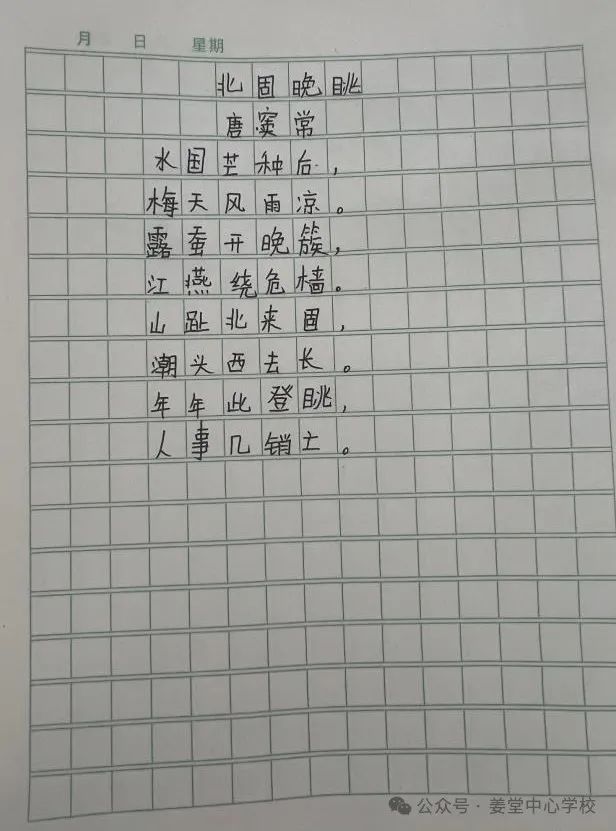 月 日 星期
北固晚眺
唐窦常
水国芒种后，
梅天风雨凉。
露蚕开晚簇，
江燕绕危樯。
山趾北来固，
潮头西去长。
年年此登眺，
人事几销亡。
公众号·姜堂中心学校